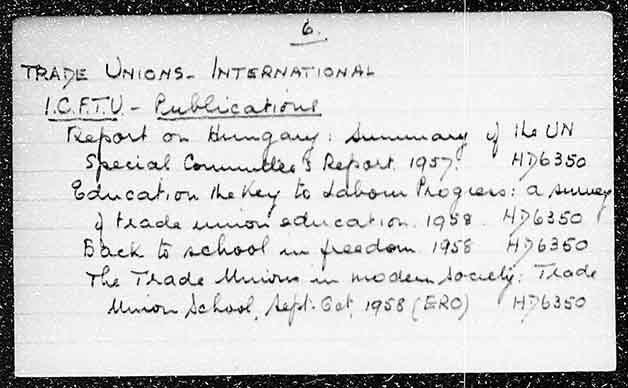 6.
TRADE UNIONS - INTERNATIONAL
I.C.F.T.U - Publications
Report on Hungary: summary of the UN
Special Committee's Report. 1957. HD6350
Education the Key to Labour Progress: a survey
of trade union education. 1958. HD6350
Back to school in freedom. 1958 HD6350
The Trade Unions in modern society: Trade
Union School, Sept-Oct, 1958 (ERO) HD6350